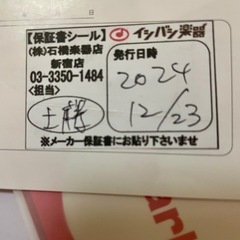 【保証書シール】 イシバシ楽器
(株)石橋楽器店
新宿店
03-3350-1484
<担当>
発行日時
2024
12/23
※メーカー保証書にお貼り下さいませ